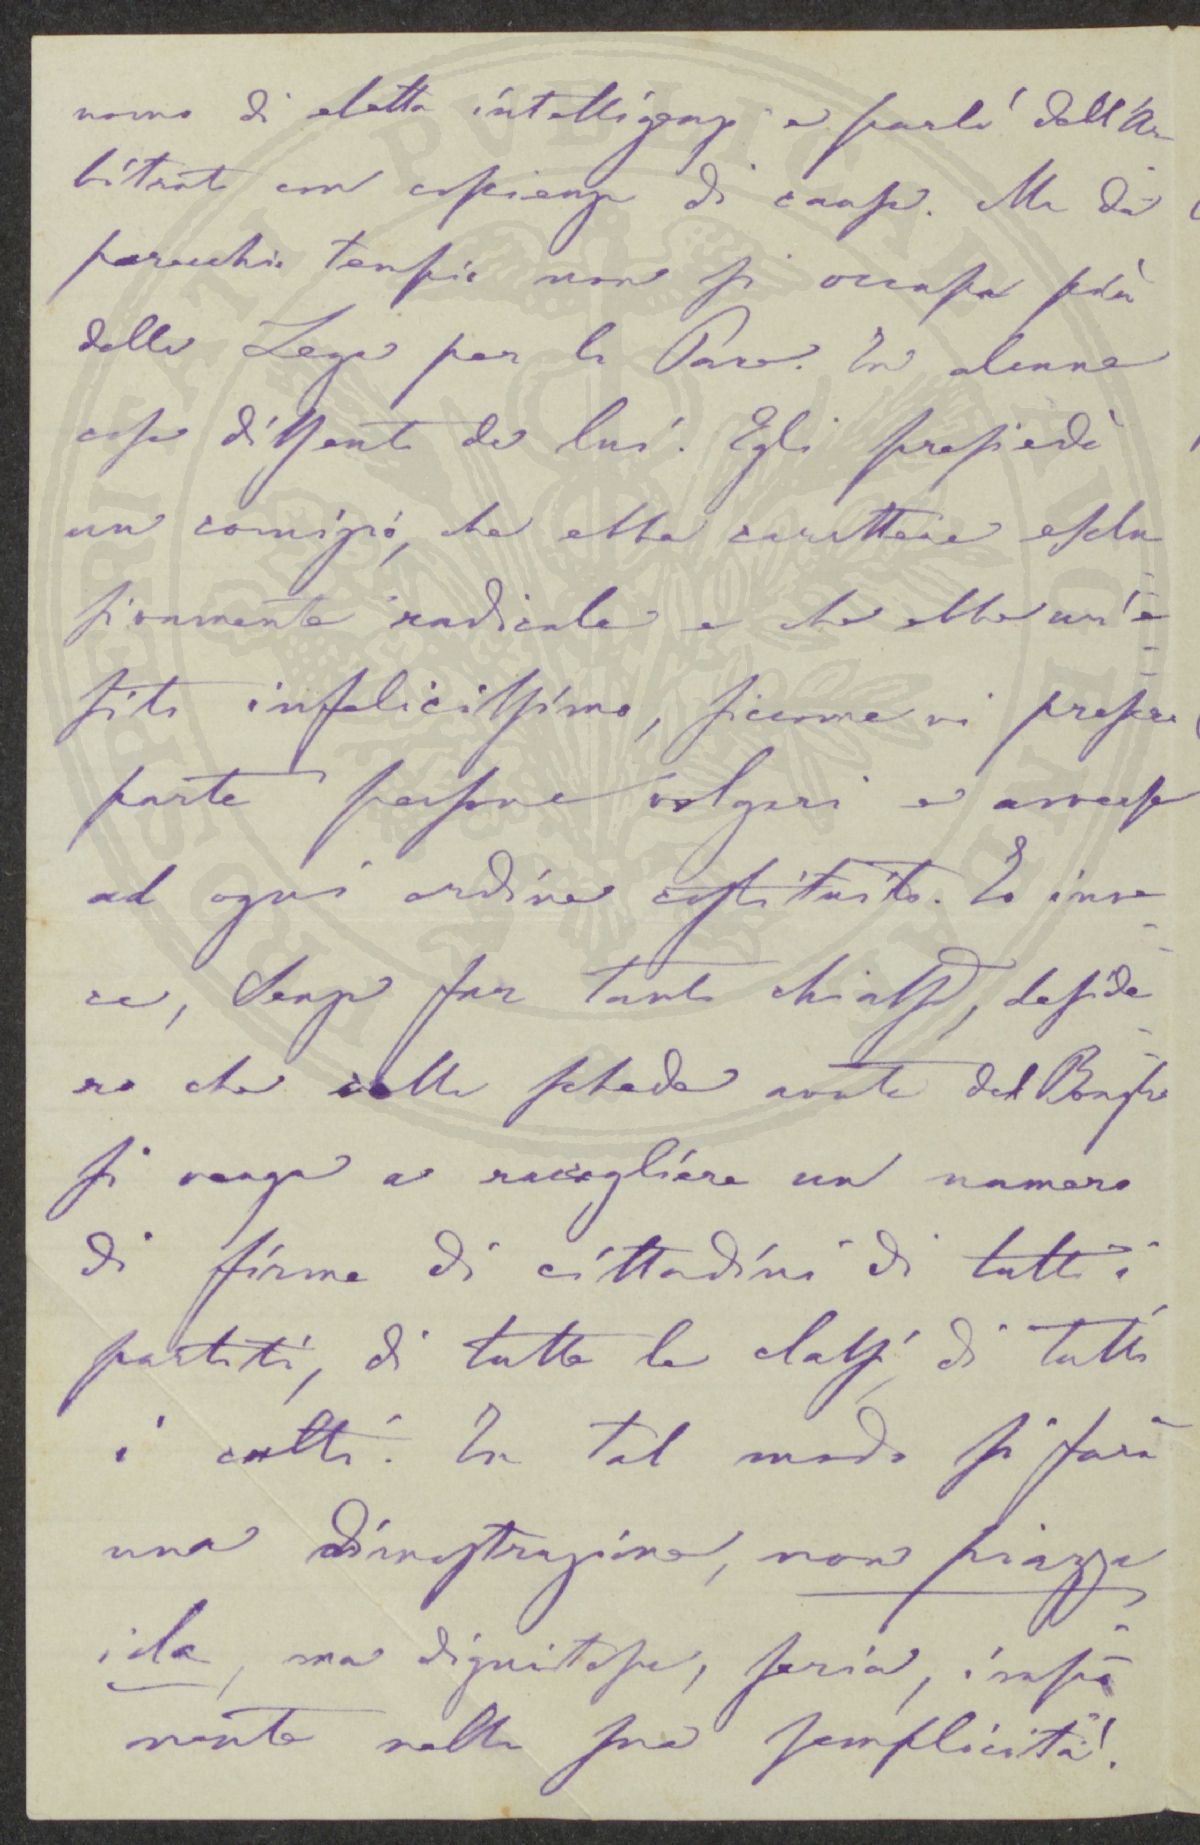 uomo di eletta intelligenza e parlò dell'Ar
bitrato con copienza di causa. Ma da
parecchio tempo non si occupa più
della Lega per la Pace. In alcune
cose dissento da lui. Egli presiedè
un comizio, che ebbe carattere esclu
sivamente radicale e che ebbe un'e
sito infelicissimo, siccome vi presero
parte persone volgari e avverse
ad ogni ordine costituito. Io inve
ce, senza far tanto chiasso, deside
ro che colle schede avute dal
si venga a raccogliere un numero
di firme di cittadini di tutti i
partiti, di tutte le classi, di tutti
i culti. In tal modo si farà
una dimostrazione, non piazza
iola, ma dignitosa, seria, impo
nente nella sua semplicità!